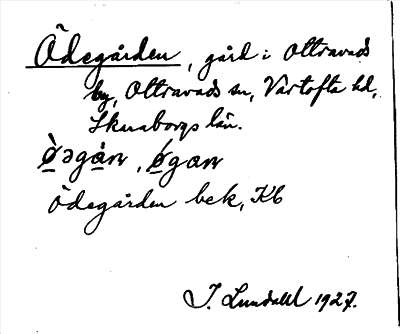 Ödegården, gård i Ottravads
by, Ottravads sn, Vartofta hd,
Skaraborgs län.
ö̀əgån, ǿgan
Ödegården bek, Kb
I. Lundahl 1927.